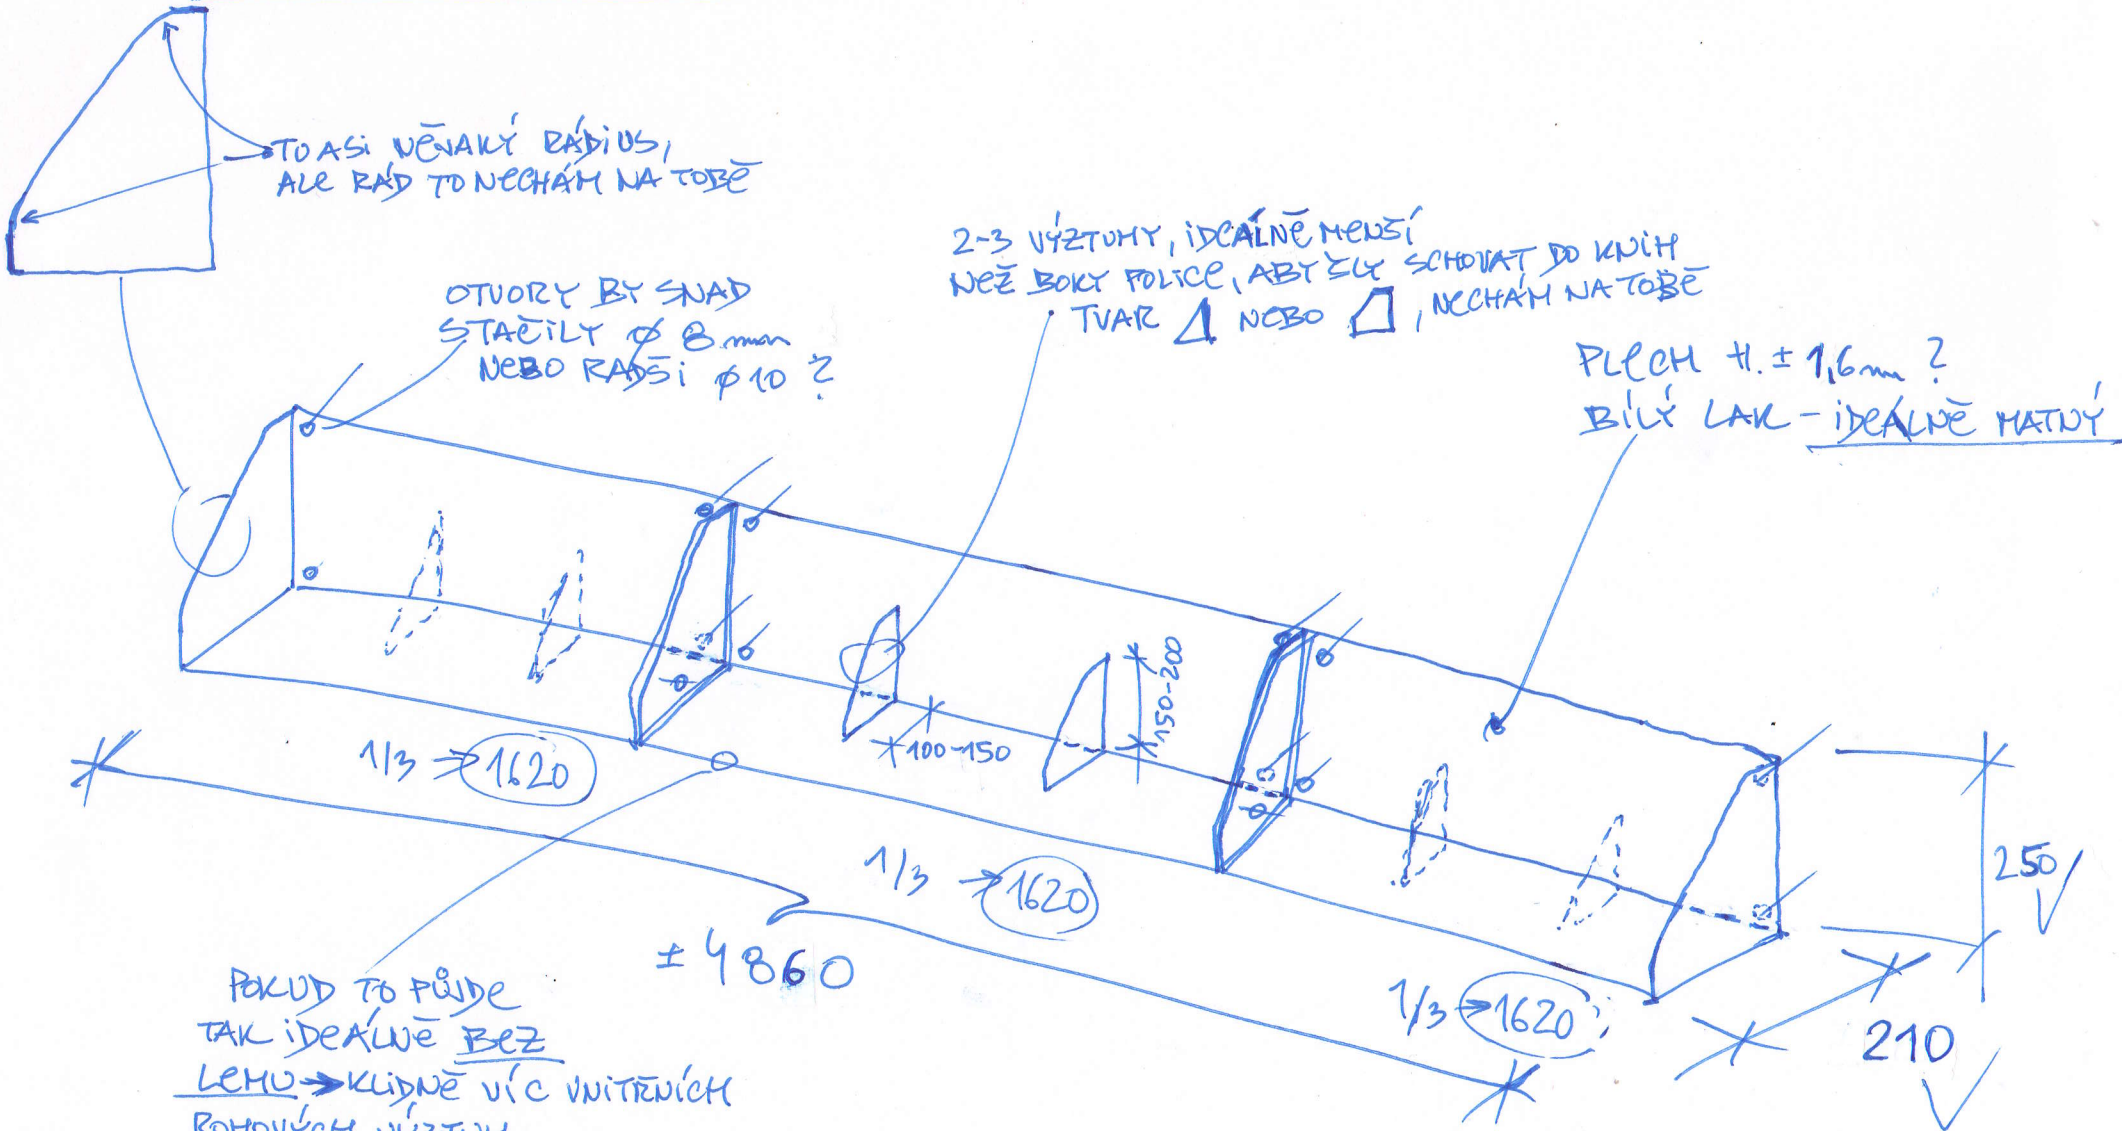 TO ASI NĚJAKÝ RÁDIUS,
ALE RÁD TO NECHÁM NA TOBĚ
OTVORY BY SNAD
STAČILY Ø 8 mm
NEBO RADŠI Ø 10 ?
2-3 VÝZTUHY, IDEÁLNĚ MENŠÍ
NEŽ BOKY POLICE, ABY ŠLY SCHOVAT DO KNIH
TVAR NEBO , NECHÁM NA TOBĚ
PLECH tl. ± 1,6 mm ?
BÍLÝ LAK - IDEÁLNĚ MATNÝ
150-200
100-150
1/3 → 1620
1/3 → 1620
1/3 → 1620
± 4860
250
210
POKUD TO PŮJDE
TAK IDEÁLNĚ BEZ
LEMU → KLIDNĚ VÍC VNITŘNÍCH
ROHOVÝCH VÝZTUH